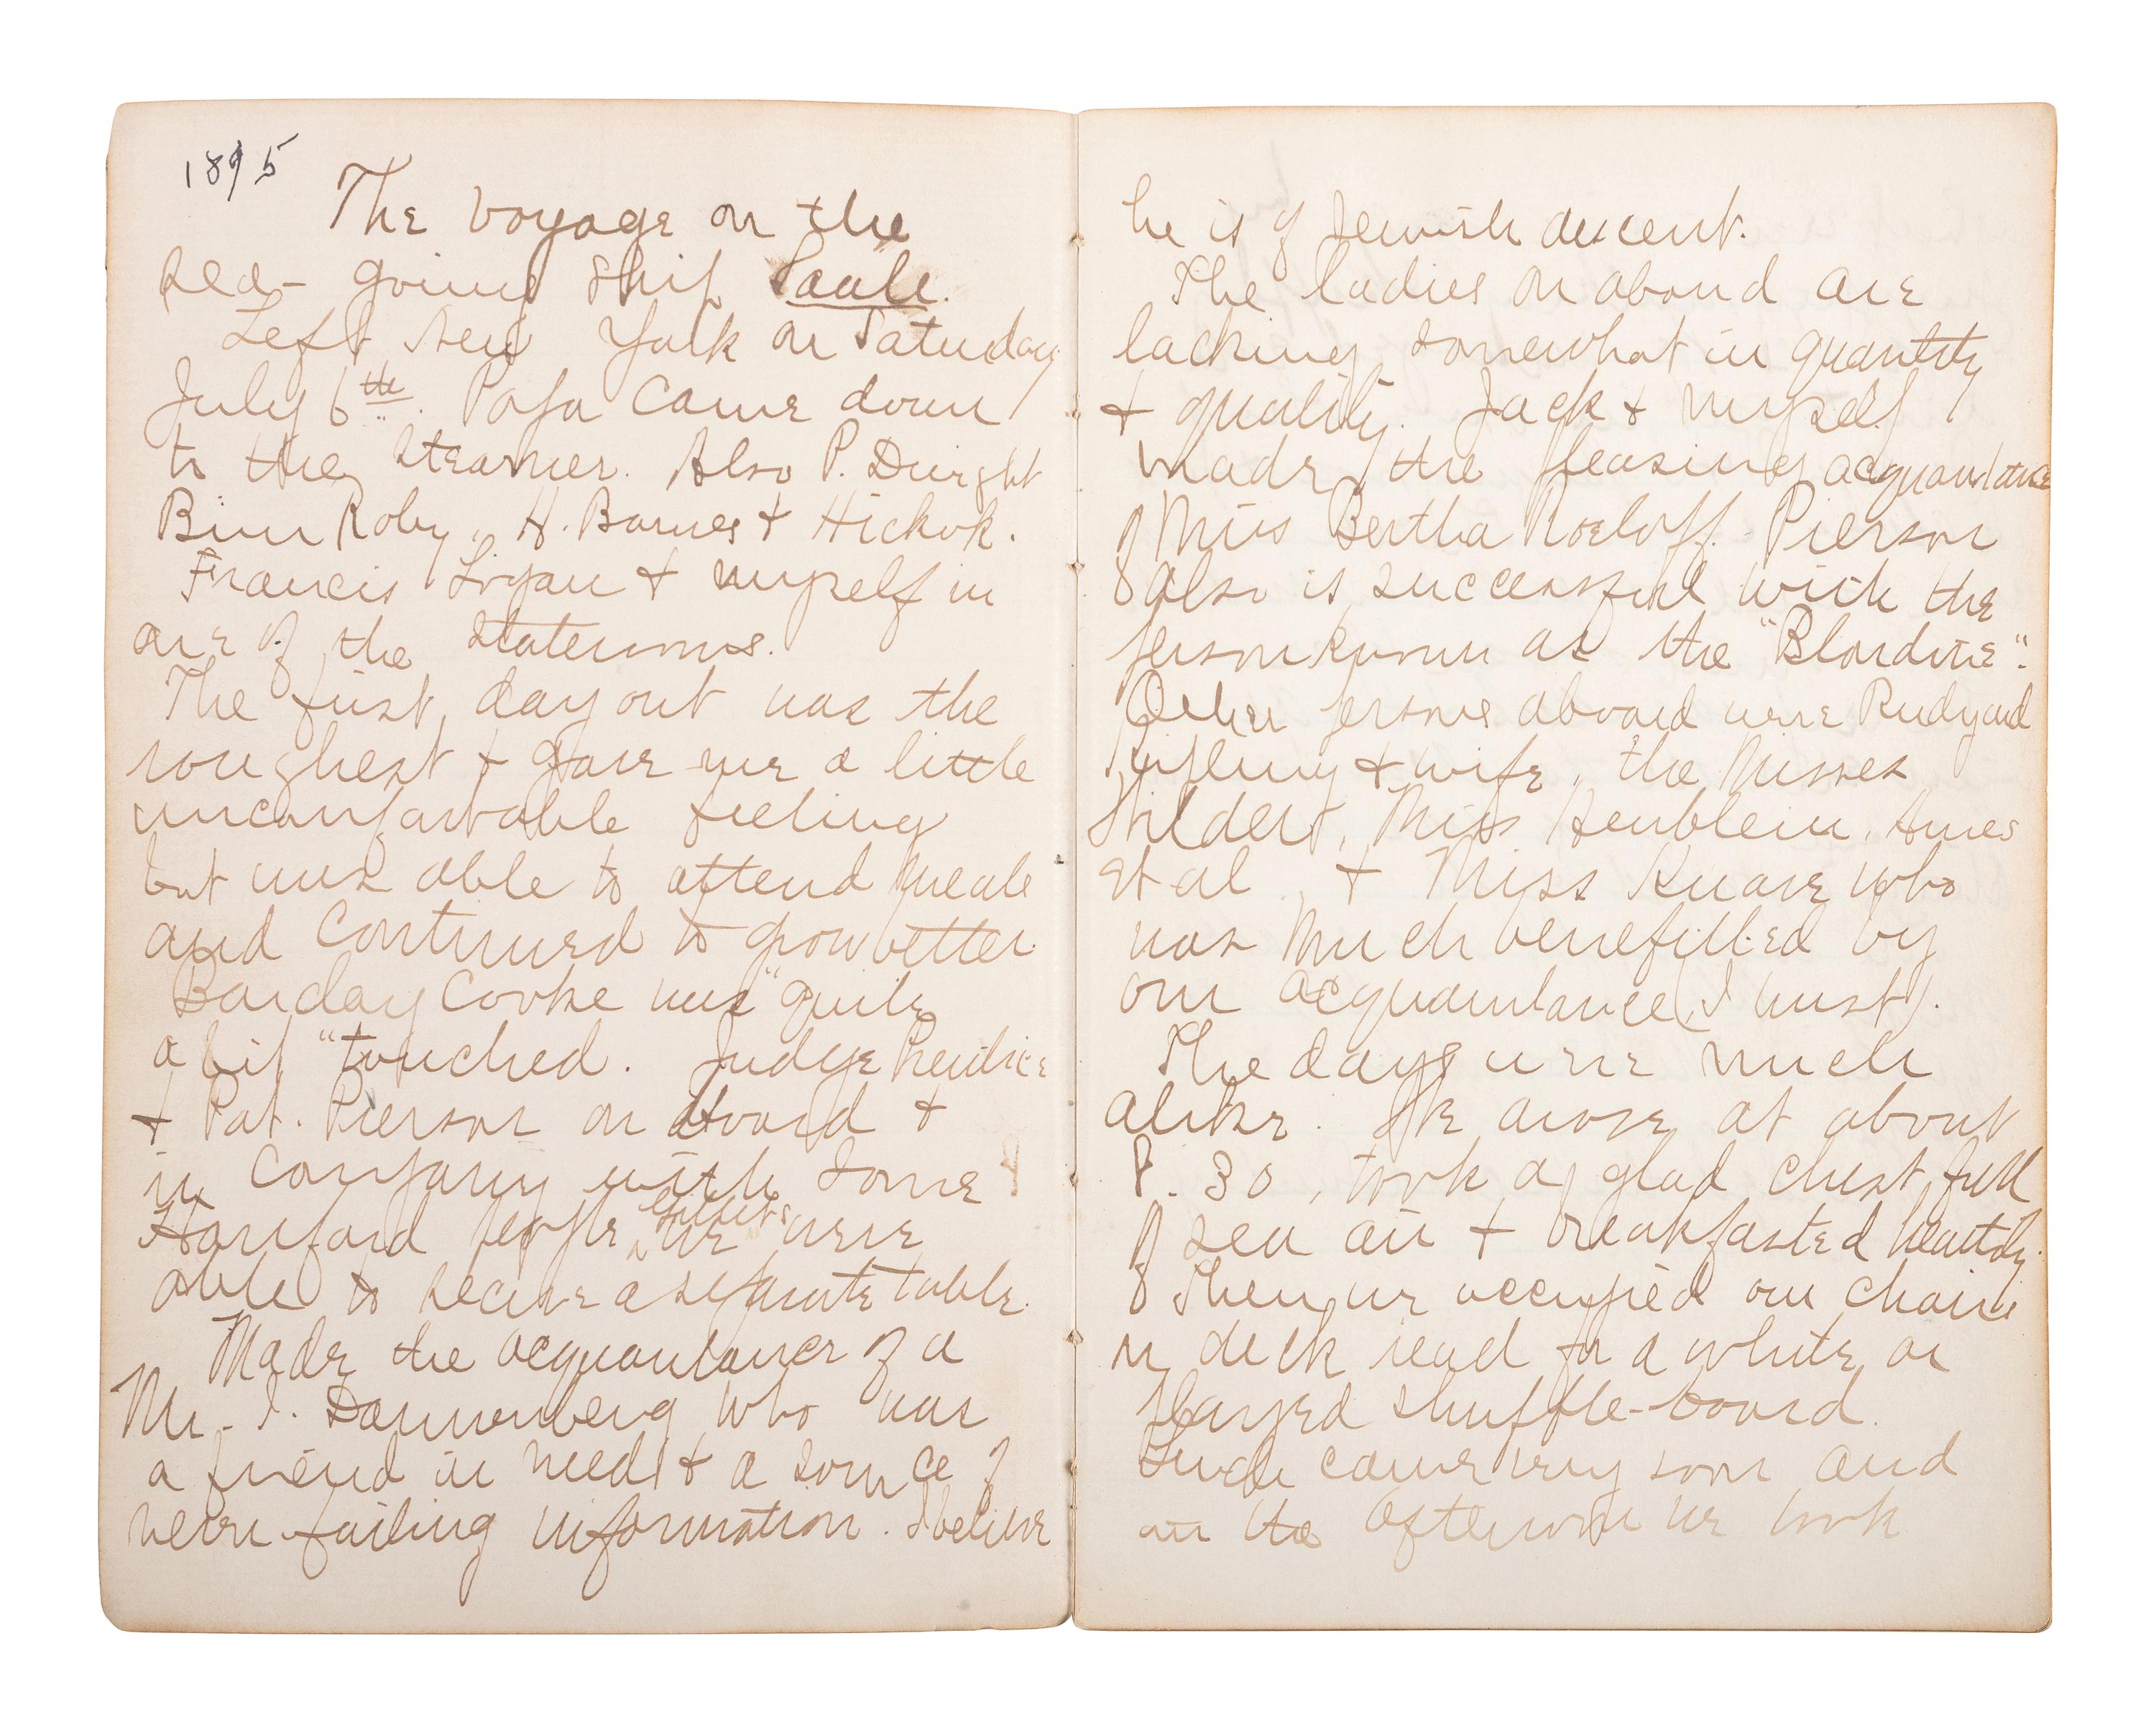 1895
The voyage on the
sea-going ship Saale.
Left New York on Saturday
July 6th. Papa came down
to the steamer. Also P. Dwight
Roby, H. Barnes & Hickok.
Francis Logan & myself in
one of the staterooms.
The first day out was the
roughest & gave me a little
uncomfortable feeling
but was able to attend meals
and continued to grow better
Barclay Cooke was "quite
a bit" touched. Judge Prentice
& Pat. Pierson on aboard &
in company with some
Hartford people we were
able to secure a separate table.
Made the acquaintance of a
Mr. I. Dannenberg who was
a friend in need & a source of
never-failing information. I believe
he is of Jewish descent.
The ladies on aboard are
lacking somewhat in quantity
& quality. Jack & myself
made the pleasing acquaintance
of Miss Bertha Roeloff. Pierson
also is successful with the
person known as the "Blondine".
Other persons aboard were Rudyard
Kipling & wife, the Misses
Miss Heublein, Ames
et al, & Miss Knave who
was much benefitted by
our acquaintance (I trust).
The days were much
alike. We arose at about
8.30, took a glad chest full
of sea air & breakfasted heartily.
Then we occupied our chairs
on deck read for a while or
played shuffle-board.
Lunch came very soon and
in the afternoon we took